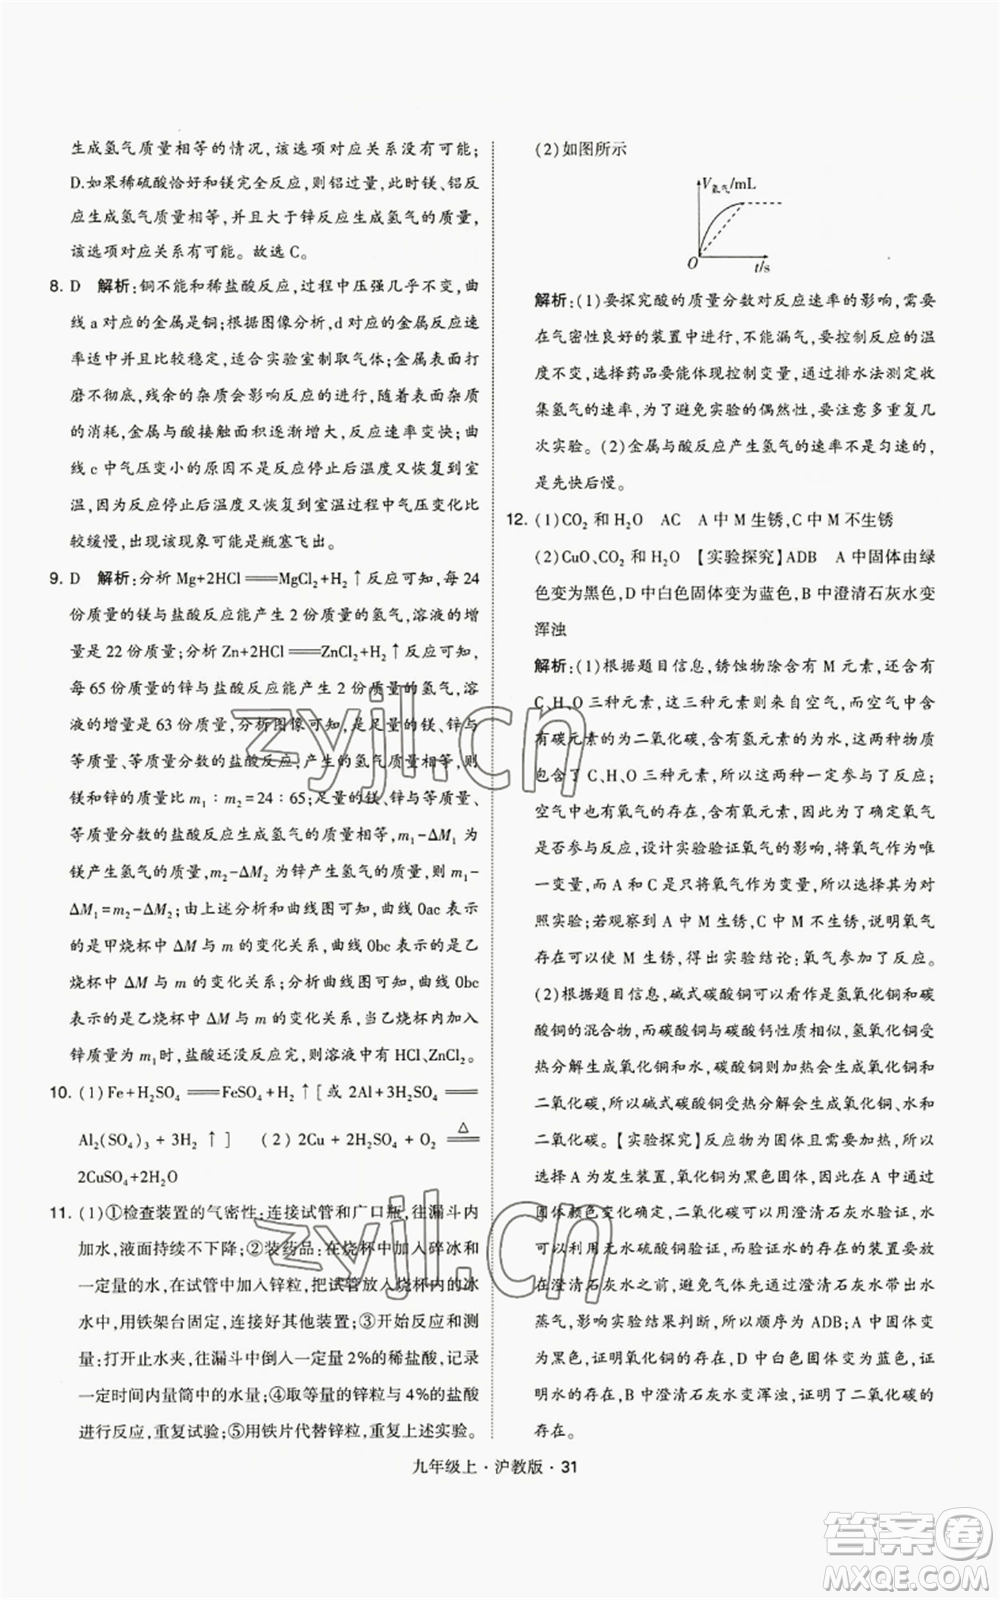 生成氢气质量相等的情况,该选项对应关系有可能;
D.如果稀硫酸恰好和镁完全反应,则铝过量,此时镁、铝反
应生成氢气质量相等,并且大于锌反应生成氢气的质量,
该选项对应关系有可能。故选C。
8. D 解析:铜不能和稀盐酸反应,过程中压强几乎不变,曲
线a对应的金属是铜;根据图像分析,d对应的金属反应速
率适中并且比较稳定,适合实验室制取气体;金属表面打
磨不彻底,残余的杂质会影响反应的进行,随着表面杂质
的消耗,金属与酸接触面积逐渐增大,反应速率变快;曲
线c中气压变小的原因不是反应停止后温度恢复到室
温,因为反应停止后温度又恢复到室温过程中气压变化比
较缓慢,出现该现象可能是瓶塞飞出。
9. D 解析:分析Mg+2HCl══MgCl₂+H₂↑反应可知,每24
份质量的镁与盐酸反应能产生2份质量的氢气,溶液的增
量是22份质量;分析Zn+2HCl══ZnCl₂+H₂↑反应可知,
每65份质量的锌与盐酸反应能产生2份质量的氢气,溶
液的增量是63份质量,分析图像可知,是足量的镁、锌与
等质量、等质量分数的盐酸反应,产生的氢气质量相同,则
镁和锌的质量比m₁∶m₂=24∶65;足量的镁、锌与等质量、
等质量分数的盐酸反应生成氢气的质量相等,m₁-ΔM₁为
镁产生氢气的质量,m₂-ΔM₂为锌产生氢气的质量,则m₁-
ΔM₁=m₂-ΔM₂;由上述分析和曲线图可知,曲线0ac表示
的是甲烧杯中ΔM与m的变化关系,曲线0bc表示的是乙
烧杯中ΔM与m的变化关系;分析曲线图可知,曲线0bc
表示的是乙烧杯中ΔM与m的变化关系,当乙烧杯内加入
锌质量为m₁时,盐酸还没反应完,则溶液中有HCl、ZnCl₂。
10. (1)Fe+H₂SO₄══FeSO₄+H₂↑[或2Al+3H₂SO₄══
Al₂(SO₄)₃+3H₂↑] (2)2Cu+2H₂SO₄+O₂══△
2CuSO₄+2H₂O
11. (1)①检查装置的气密性:连接试管和广口瓶,往漏斗内
加水,液面持续不下降;②装药品:在烧杯中加入碎冰和
一定量的水,在试管中加入锌粒,把试管放入烧杯的冰
水中,用铁架台固定,连接好其他装置;③开始反应和测
量:打开止水夹,往漏斗中倒入一定量2%的稀盐酸,记录
一定时间内量筒中的水量;④取等量的锌粒与4%的盐酸
进行反应,重复试验;⑤用铁片代替锌粒,重复上述实验。
(2)如图所示
V氢气/mL
O
t/s
解析:(1)要探究酸的质量分数对反应速率的影响,需要
在气密性良好的装置中进行,不能漏气,要控制反应的温
度不变,选择药品要能体现控制变量,通过排水法测定收
集氢气的速率,为了避免实验的偶然性,要注意多做几
次实验。(2)金属与酸反应产生氢气的速率不是匀速的,
是先快后慢。
12. (1)CO₂和H₂O AC A中M生锈,C中M不生锈
(2)CuO、CO₂和H₂O 【实验探究】ADB A中固体由绿
色变为黑色,D中白色固体变为蓝色,B中澄清石灰水变
浑浊
解析:(1)根据题目信息,锈蚀物除了含有M元素,还含有
C、H、O三种元素,这三种元素来自空气,空气中含
有碳元素的为二氧化碳,含氢元素的为水,这两种物质中
包含了C、H、O三种元素,所以这两种一定参与了反应;
空气中也有氧气的存在,含有氧元素,所以为了确定氧气
是否参与反应,设计实验验证氧气的作用,将氧气作为唯
一变量,而A和C是只将氧气作为变量,所以选择AC为对
照实验;若观察到A中M生锈,C中M不生锈,说明氧气
存在可以使M生锈,得出实验结论:氧气参与了反应。
(2)根据题目信息,碱式碳酸铜可以看作是氢氧化铜和碳
酸铜的混合物,而碳酸铜与碳酸钙性质相似,氢氧化铜受
热分解生成氧化铜和水,碳酸铜受热分解生成氧化铜和
二氧化碳,所以碱式碳酸铜受热分解生成氧化铜、水和
二氧化碳。【实验探究】反应物为固体且需要加热,所以
选择A为发生装置,氧化铜为黑色固体,因此在A中通过
固体颜色变化得到验证,二氧化碳可以用澄清石灰水验证,
可以利用无水硫酸铜验证,而水的存在的验证应放
在澄清石灰水之前,避免气体先通过澄清石灰水带出水
蒸气,影响实验结果判断,所以顺序为ADB;A中固体变
为黑色,证明氧化铜的存在,D中白色固体变为蓝色,证
明水的存在,B中澄清石灰水变浑浊,证明了二氧化碳的
存在。
九年级上·沪教版·31
zyjl.cn
zyjl.cn
答案圈
MXQE.COM